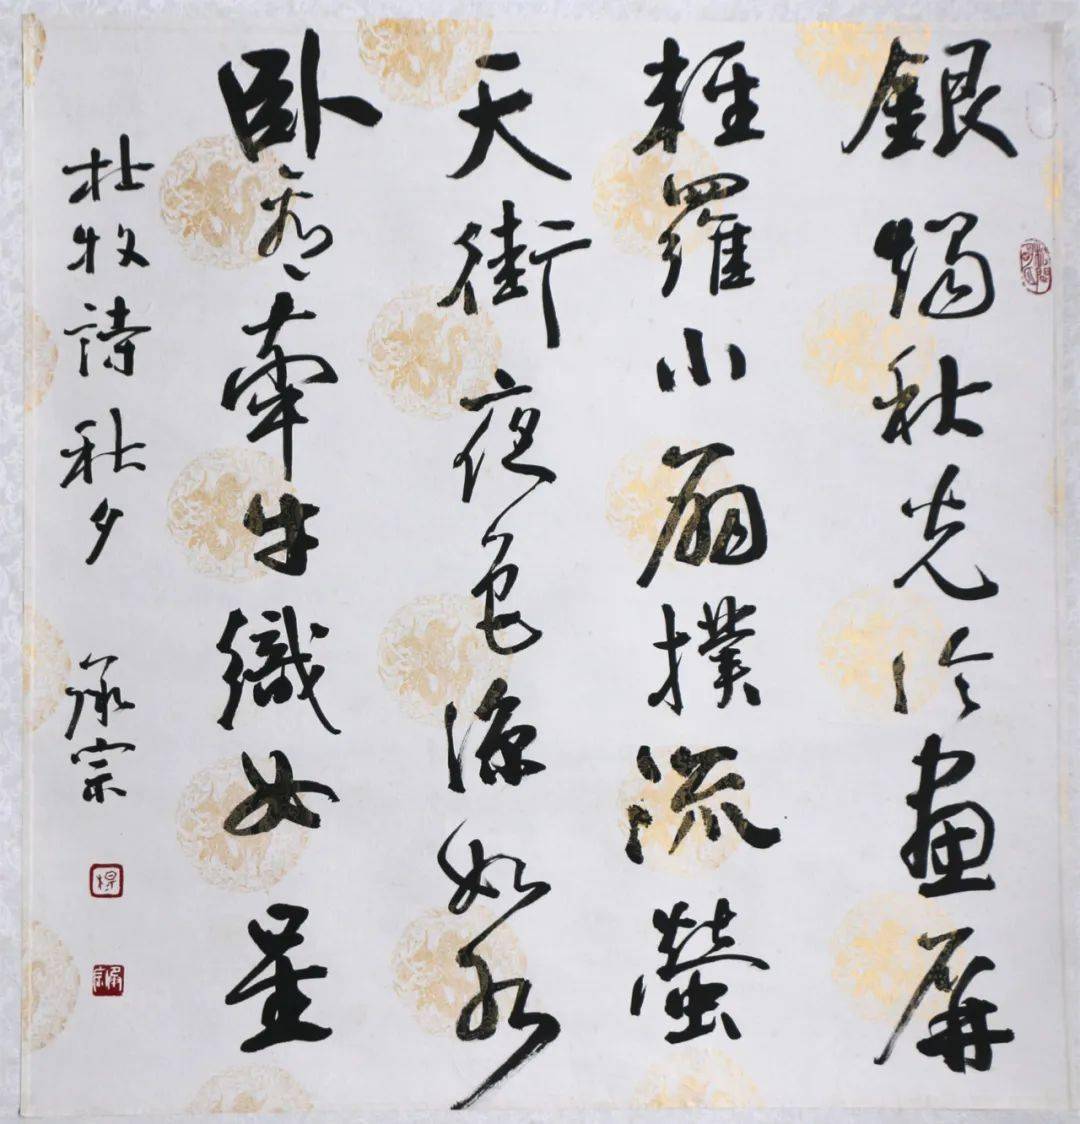 銀燭秋光冷畫屏
輕羅小扇撲流螢
天街夜色涼如水
卧看牽牛織女星
杜牧詩 秋夕 承宗